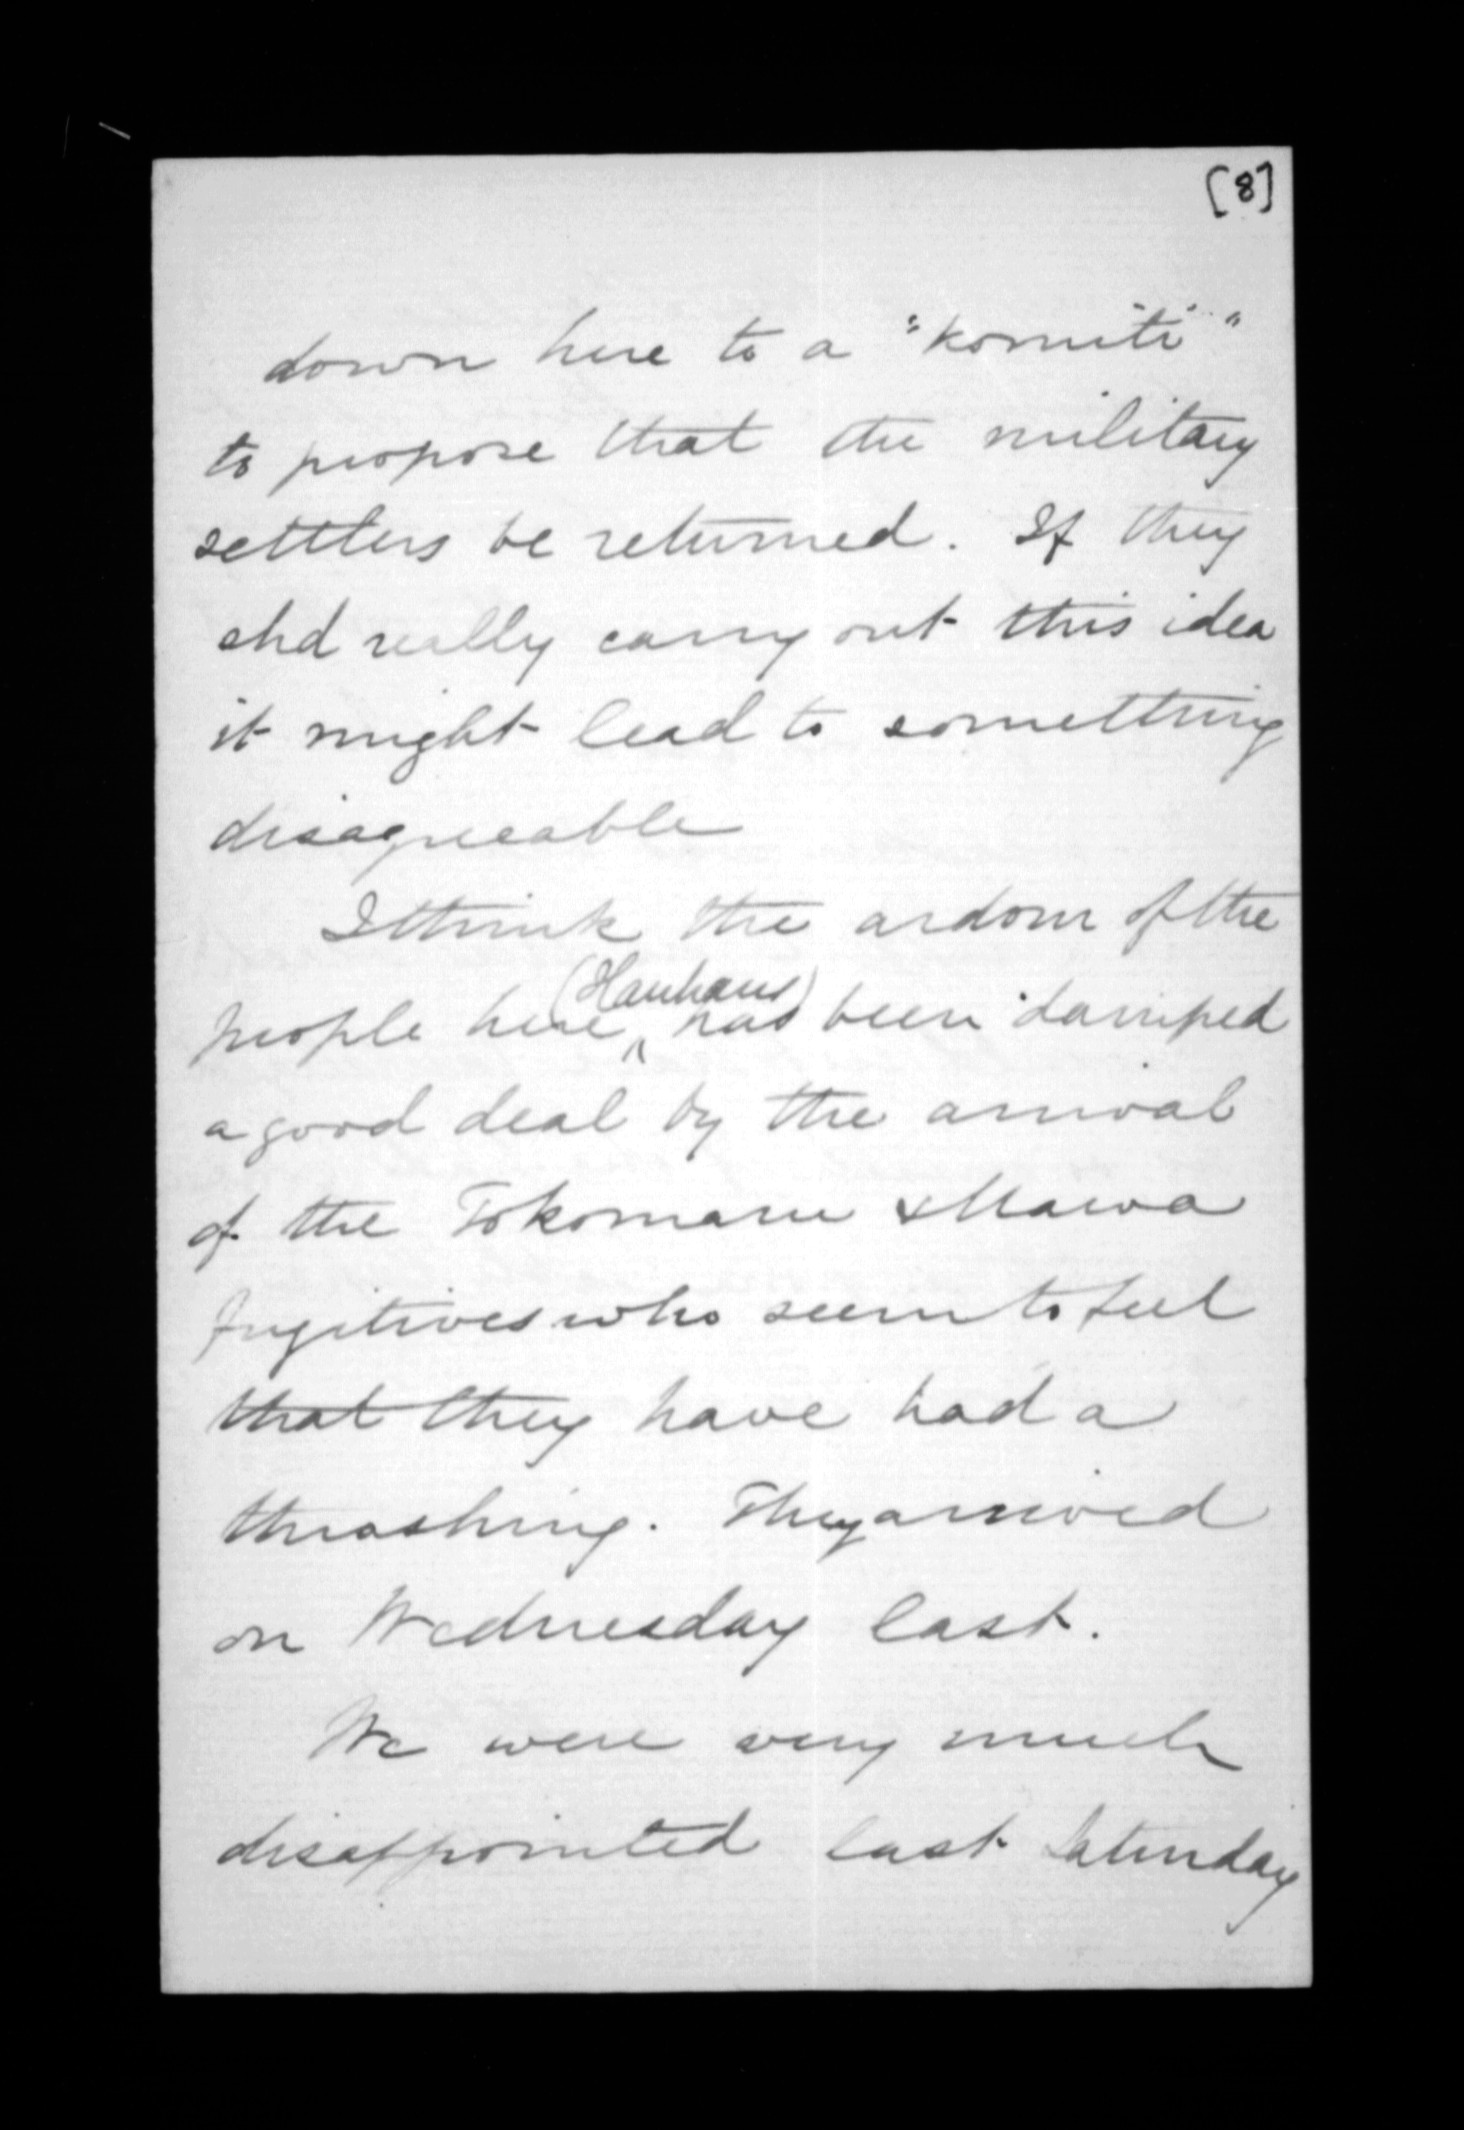 [8]
down here to a "komiti"
to propose that the military
settlers be returned. If they
shd really carry out this idea
it might lead to something
disagreeable
I think the ardour of the
(Hauhaus)
people here ^ has been damped
a good deal by the arrival
of the Tokomaru & Mawa
fugitives who seem to feel
that they have had a
thrashing. They arrived
on Wednesday last.
We were very much
disappointed last Saturday